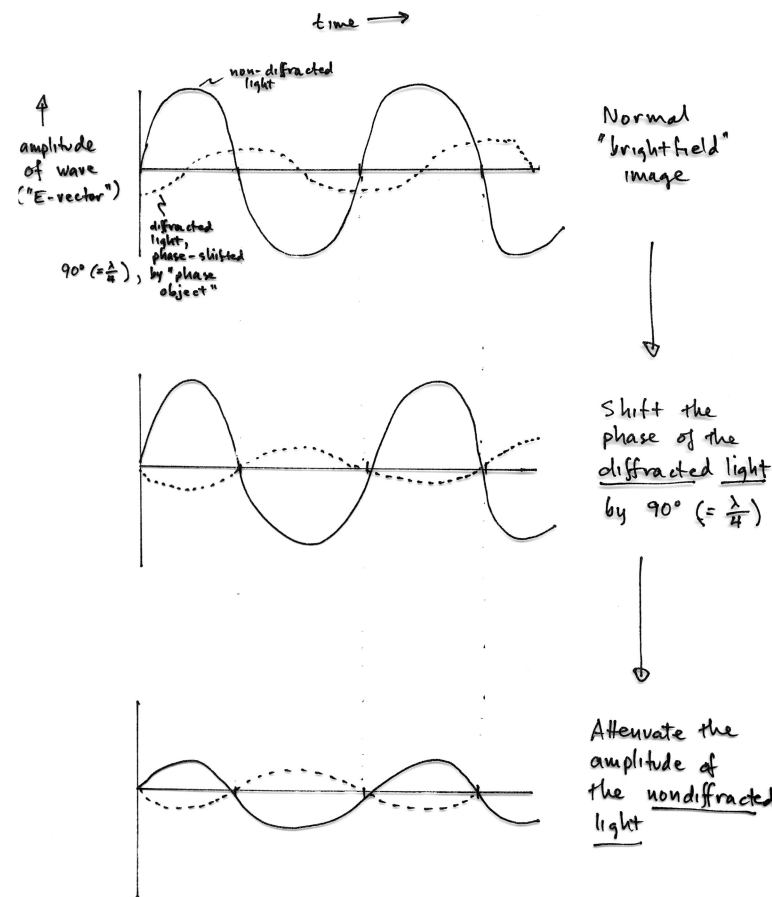 time →
non-diffracted
light
↑
amplitude
of wave
("E-vector")
diffracted
light,
phase-shifted
90° (=λ/4), by "phase
object"
Normal
"brightfield"
image
↓
Shift the
phase of the
diffracted light
by 90° (=λ/4)
↓
Attenuate the
amplitude of
the nondiffracted
light